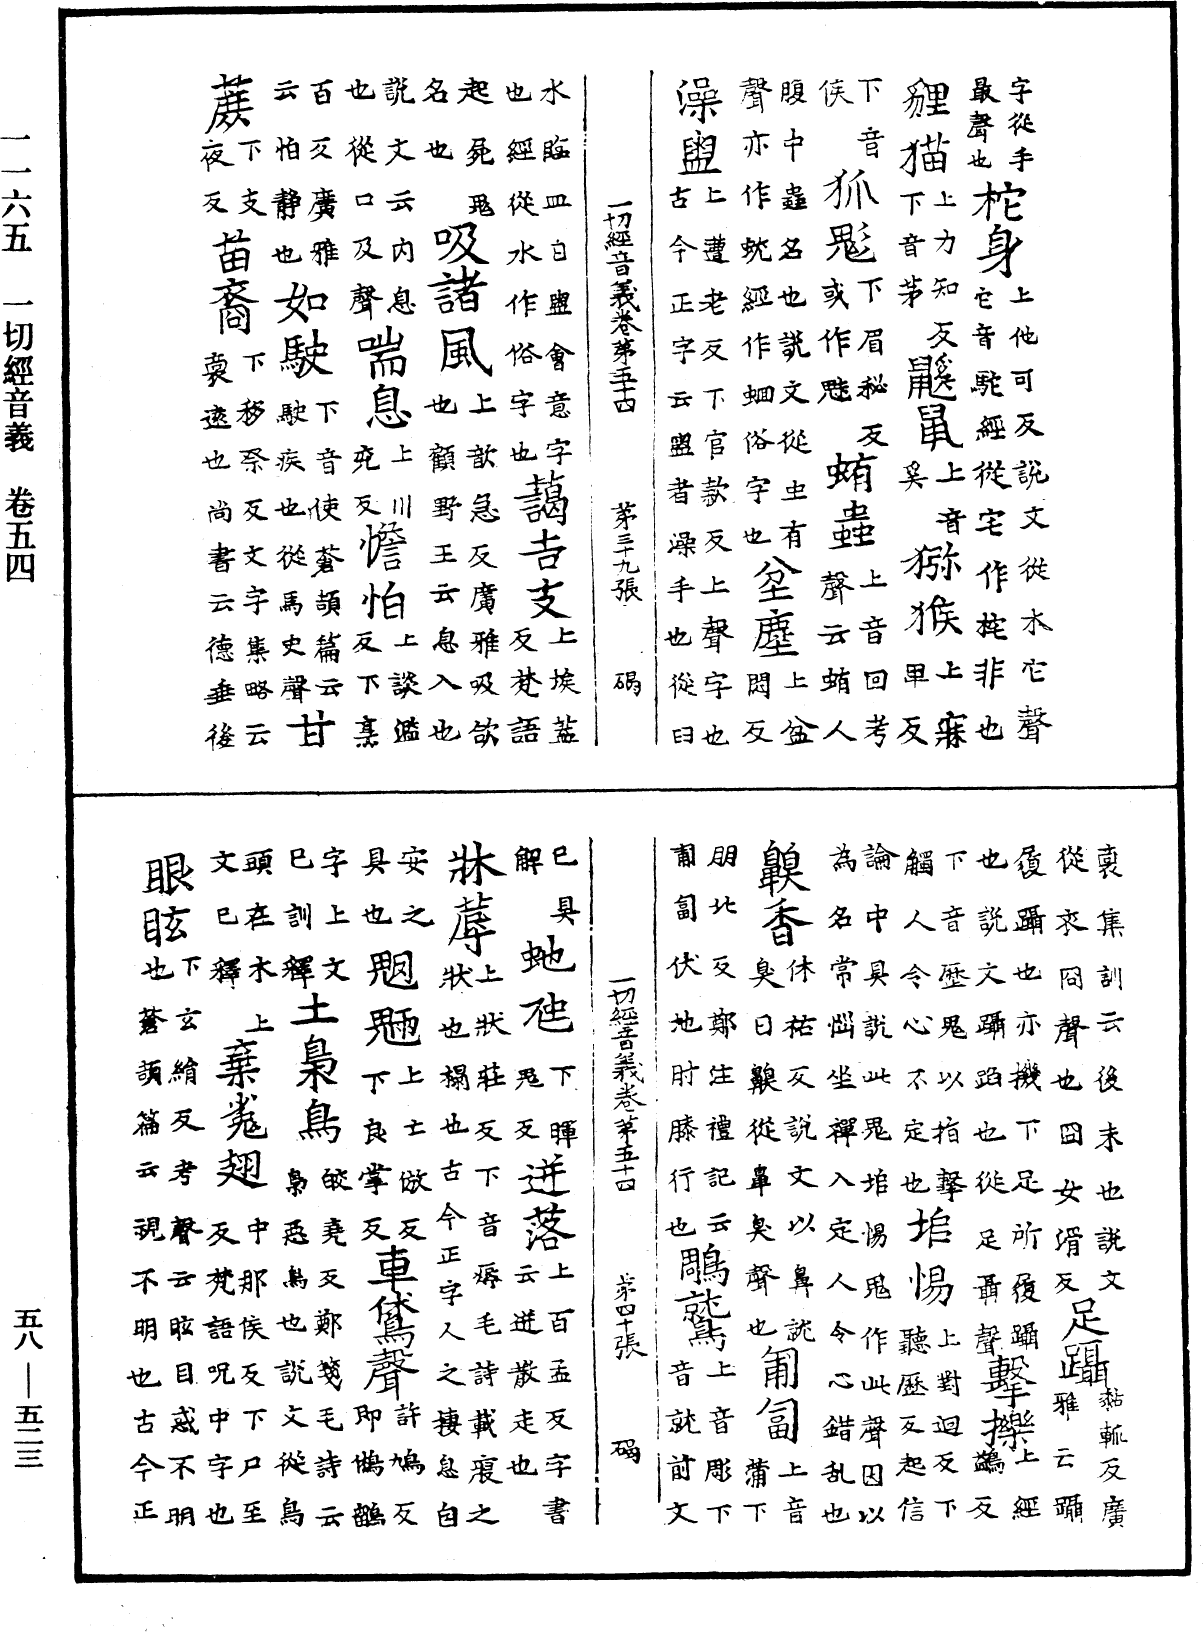 一一六五　一切經音義　卷五四
五八—五二三
字從手
最聲也
柁身
上他可反說文從木它聲
它音駝經從宅作㭟非也
貍猫
上力知反
下音苗
鼷鼠
上音
奚
猕猴
上寐
畢反
下音
侯
狐鬽
下眉秘反
或作魅
蛕蟲
上音回考
聲云蛕人
腹中蟲名也說文從虫有
聲亦作蚘經作蛔俗字也
坌塵
上盆
悶反
澡盥
上遭老反下官款反上聲字也
古今正字云盥者澡手也從臼
一切經音義卷第五十四　第三十九張　碣
水臨皿曰盥會意字
也經從水作俗字也
藹吉支
上埃蓋
反梵語
起死鬼
名也
吸諸風
上歆急反廣雅吸飲
也顧野王云息入也
說文云內息
也從口及聲
喘息
上川
兖反
憺怕
上談濫
反下亭
百反廣雅
云怕靜也
如駛
下音使蒼頡篇云
駛疾也從馬史聲
甘
蔗
下支
夜反
苗裔
下移祭反文字集略云
裔遠也尚書云德垂後
裔集訓云後末也說文
從衣冏聲也冏女滑反
足躡
黏輒反廣
雅云躡
履躡也亦機下足所履躡
也說文躡蹈也從足聶聲
擊擽
上經
鷁反
下音歷鬼以指擊
觸人令心不定也
埳惕
上對迴反下
聽歷反起信
論中具說此鬼埳惕鬼作此聲因以
為名常惱坐禪入定人令心錯乱也
齅香
休祐反說文以鼻就
臭曰齅從鼻臭聲也
匍匐
上音
蒲下
朋北反鄭注禮記云
匍匐伏地肘膝行也
鵰鷲
上音彫下
音就前文
一切經音義卷第五十四　第四十張　碣
已具
解
虵虺
下暉
鬼反
迸落
上百孟反字書
云迸散走也
牀蓐
上狀莊反下音辱毛詩載寢之
狀也榻也古今正字人之棲息自
安之
具也
魍魎
上士倣反
下良掌反
車鵀聲
許鳩反
即鵂鶹
字上文
已訓釋
土梟鳥
皎堯反鄭箋毛詩云
梟惡鳥也說文從鳥
頭在木上
文已釋
棄㲋翅
中那侯反下尸至
反梵語呪中字也
眼眩
下玄絹反考聲云眩目惑不明
也蒼頡篇云視不明也古今正